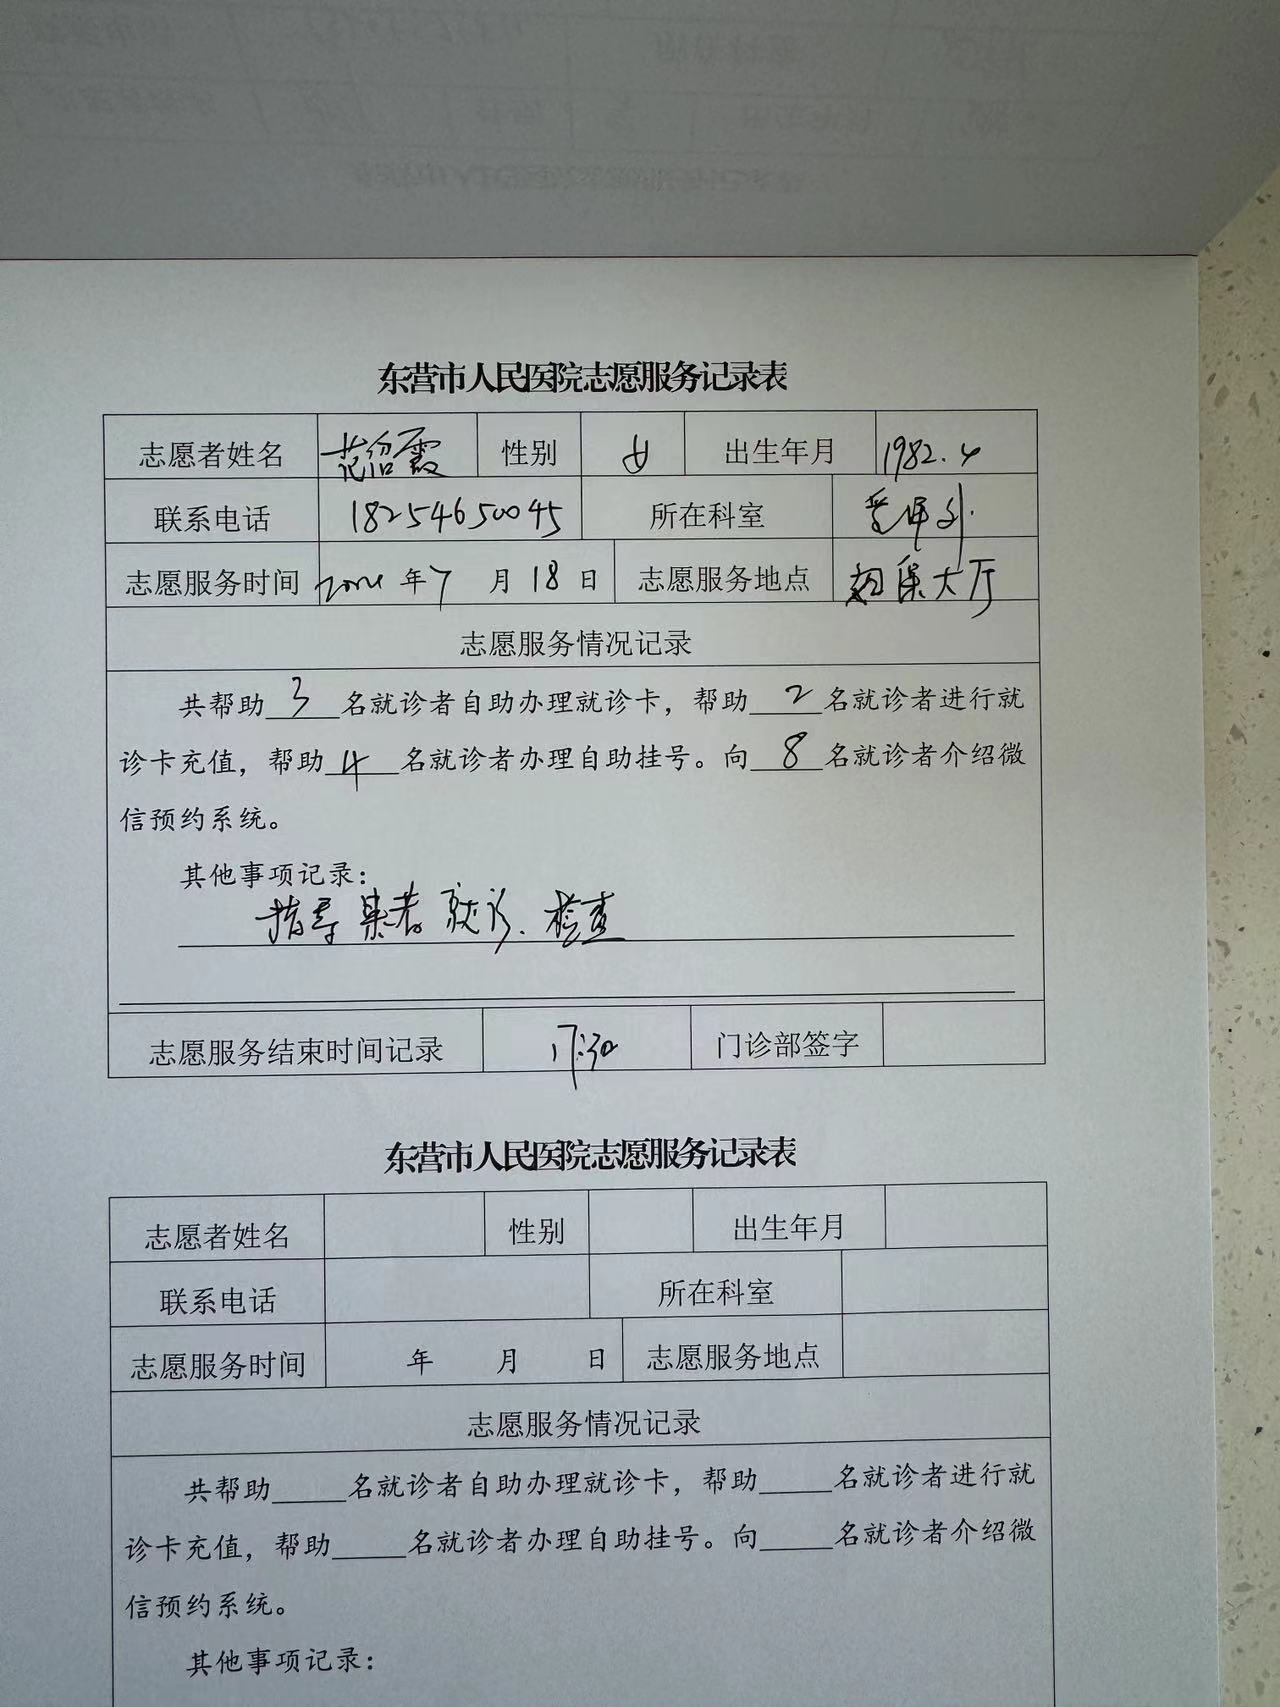 东营市人民医院志愿服务记录表
志愿者姓名 范绍霞 性别 女 出生年月 1982.4
联系电话 18254650045 所在科室
志愿服务时间 年7月18日 志愿服务地点 大厅
志愿服务情况记录
共帮助 3 名就诊者自助办理就诊卡，帮助 2 名就诊者进行就
诊卡充值，帮助 4 名就诊者办理自助挂号。向 8 名就诊者介绍微
信预约系统。
其他事项记录：
指导患者就诊、检查
志愿服务结束时间记录 17:30 门诊部签字
东营市人民医院志愿服务记录表
志愿者姓名 性别 出生年月
联系电话 所在科室
志愿服务时间 年 月 日 志愿服务地点
志愿服务情况记录
共帮助_____名就诊者自助办理就诊卡，帮助_____名就诊者进行就
诊卡充值，帮助_____名就诊者办理自助挂号。向_____名就诊者介绍微
信预约系统。
其他事项记录：